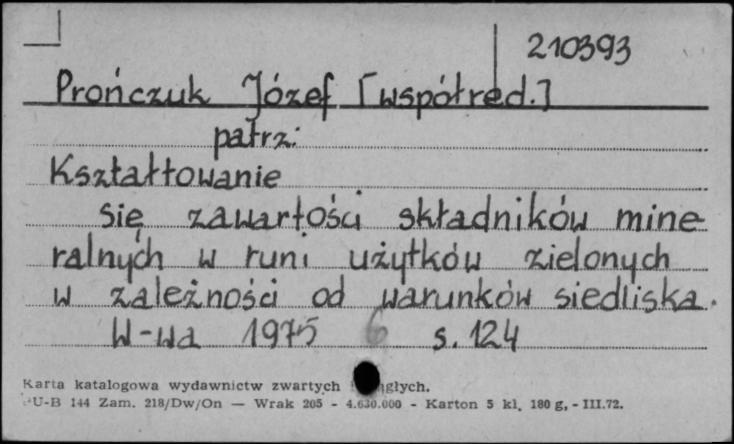 210393
Prończuk Józef [współred.]
patrz:
Kształtowanie
się zawartości składników mine
ralnych w runi użytków zielonych
w zależności od warunków siedliska.
W-wa 1975 6 s. 124
Karta katalogowa wydawnictw zwartych
PU-B 144 Zam. 218/Dw/On — Wrak 205 - 4.630.000 - Karton 5 kl. 180 g, - III.72.